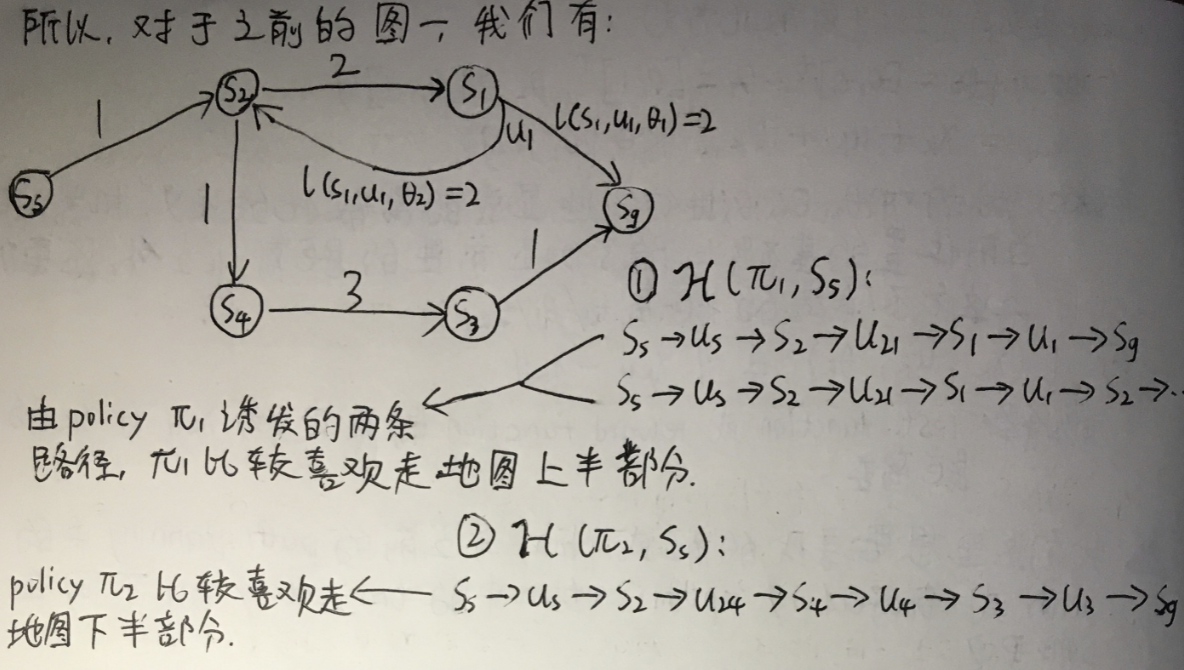 所以,对于之前的图一,我们有:
2
S₂
S₁
1
u₁
l(s₁,u₁,θ₁)=2
l(s₁,u₁,θ₂)=2
Sₛ
1
Sg
1
3
S₄
S₃
① H(π₁,Sₛ):
Sₛ→uₛ→S₂→u₂₁→S₁→u₁→Sg
Sₛ→uₛ→S₂→u₂₁→S₁→u₁→S₂→..
由policy π₁诱发的两条
路径,π₁比较喜欢走地图上半部分.
② H(π₂,Sₛ):
policy π₂比较喜欢走
地图下半部分.
Sₛ→uₛ→S₂→u₂₄→S₄→u₄→S₃→u₃→Sg